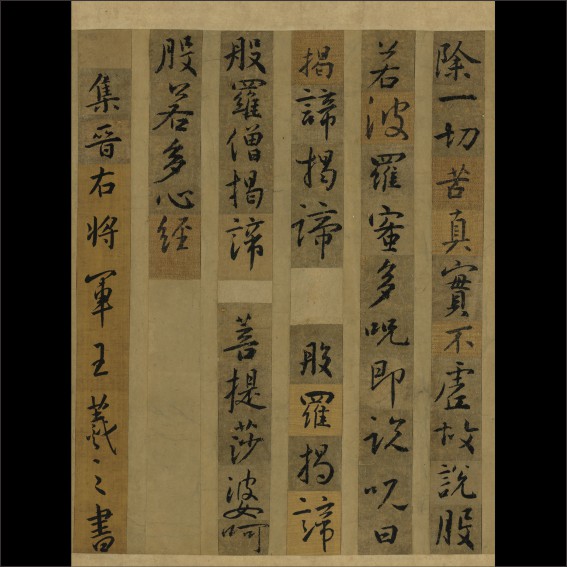 除一切苦真實不虛故說般
若波羅蜜多呪即說呪曰
揭諦揭諦 般羅揭諦
般羅僧揭諦 菩提莎婆呵
般若多心經
集晉右將軍王羲之書